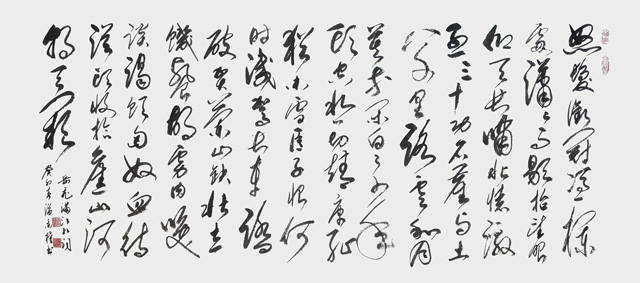 怒髮衝冠憑欄
處瀟瀟雨歇抬望眼
仰天長嘯壯懷激
烈三十功名塵與土
八千里路雲和月
莫等閑白了少年
頭空悲切靖康恥
猶未雪臣子恨何
時滅駕長車踏
破賀蘭山缺壯志
飢餐胡虜肉笑
談渴飲匈奴血待
從頭收拾舊山河
朝天闕
岳飛滿江紅詞
癸卯年潘書